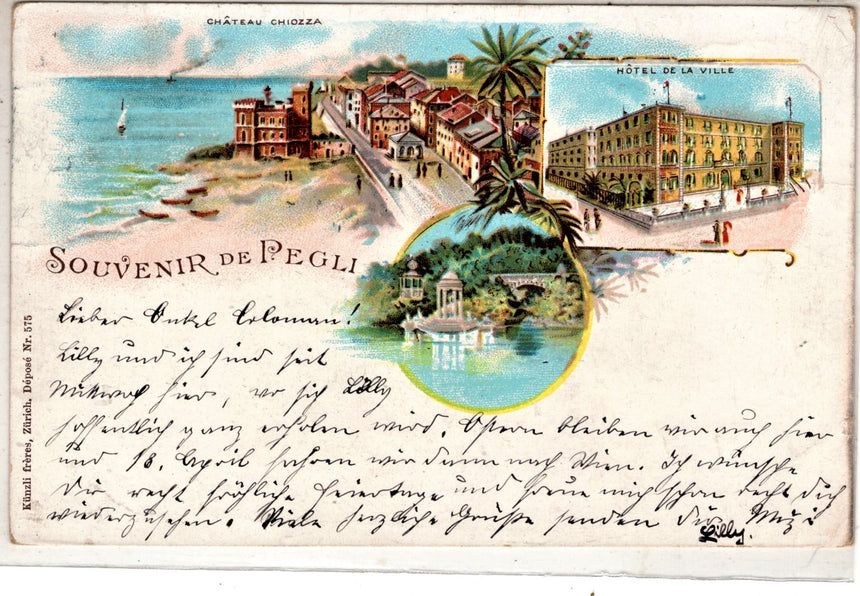 CHÂTEAU CHIOZZA
HÔTEL DE LA VILLE
SOUVENIR DE PEGLI
Künzli frères, Zürich. Déposé Nr. 575
Lieber Onkel Coloman!
Lilly und ich sind seit
Mittwoch hier, wo sich Lilly
hoffentlich ganz erholen wird. Ostern bleiben wir auch hier
und 18. April fahren wir dann nach Wien. Ich wünsche
Dir recht fröhliche Feiertage und freue mich schon recht dich
wiederzusehen. Viele herzliche Grüße senden Dir Mizi
Lilly.